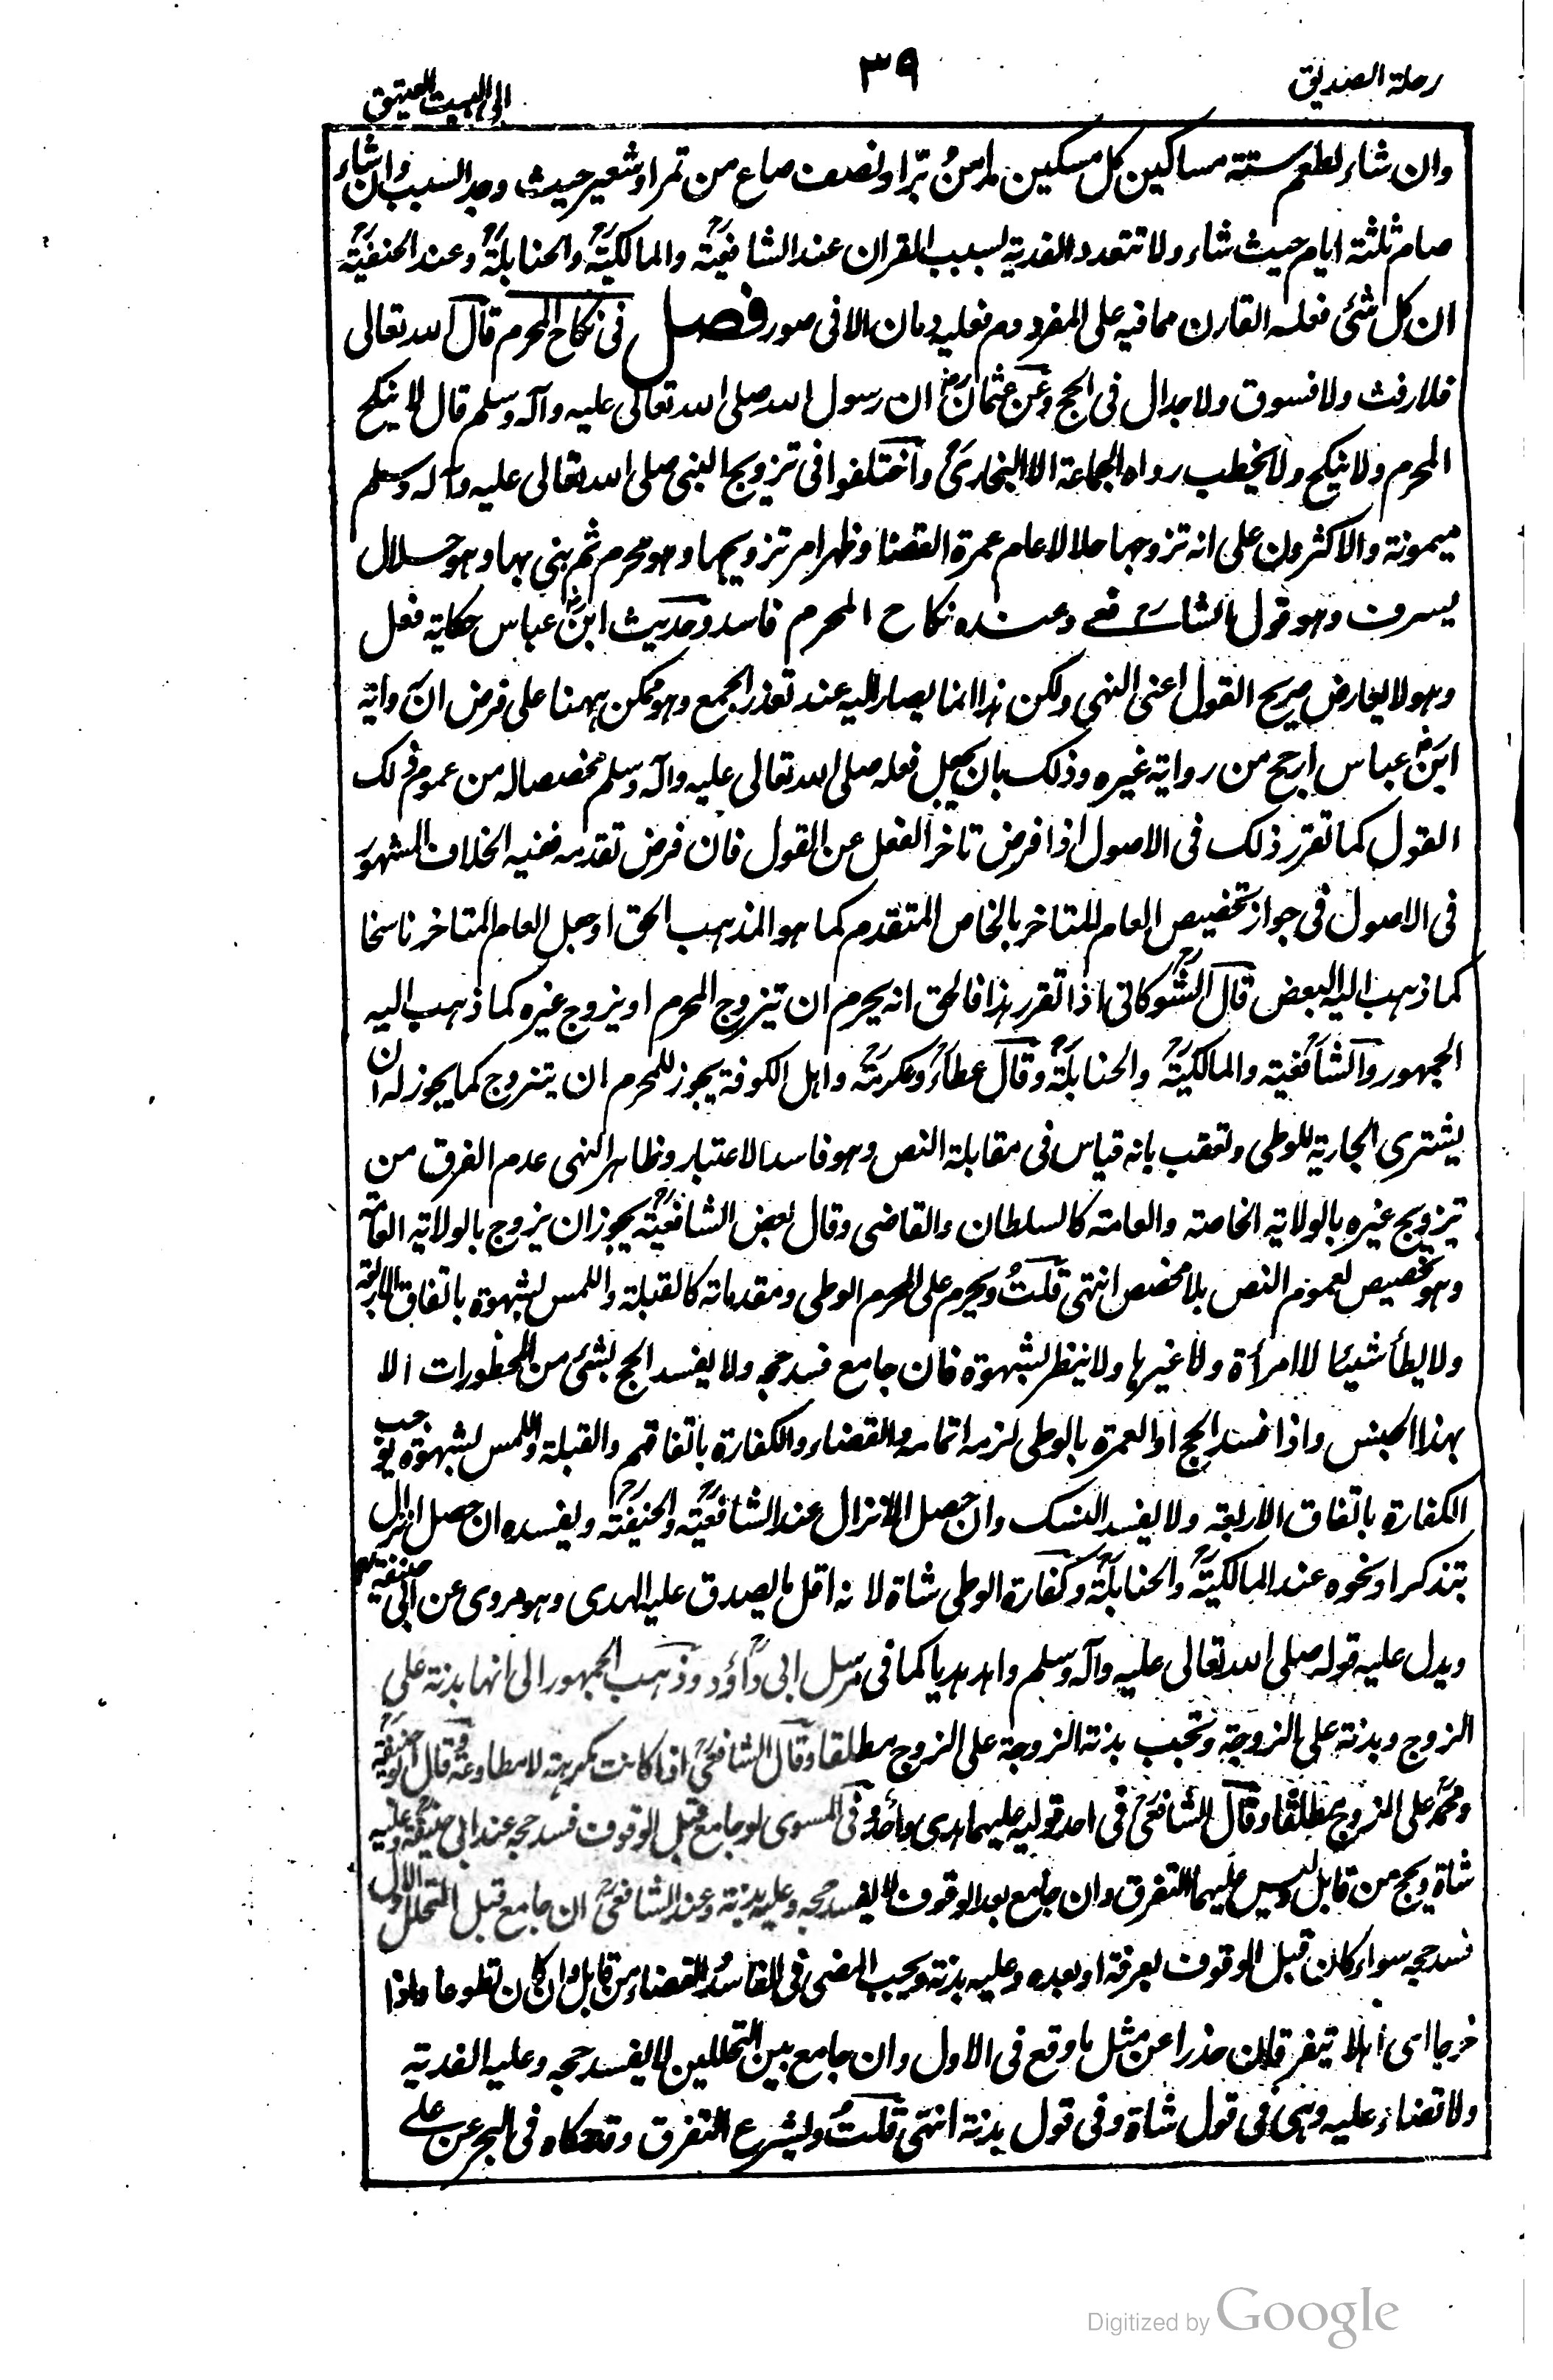 رحلة الصديق
٣٩
الى البيت العتيق
وان شاء اطعم ستة مساكين كل مسكين مدا من بُرّ او نصف صاع من تمر او شعير حيث وجد السبب وان شاء
صام ثلثة ايام حيث شاء ولا تتعدد الفدية بسبب القران عند الشافعية والمالكية والحنابلة وعند الحنفية
ان كل شئ فعله القارن مما فيه على المفرد دم فعليه دمان الا فى صور فصل فى نكاح المحرم قال الله تعالى
فلا رفث ولا فسوق ولا جدال فى الحج وعن عثمان رض ان رسول الله صلى الله تعالى عليه وآله وسلم قال لا ينكح
المحرم ولا ينكح ولا يخطب رواه الجماعة الا البخارى واختلفوا فى تزويج النبى صلى الله تعالى عليه وآله وسلم
ميمونة والاكثرون على انه تزوجها حلالا عام عمرة القضا وظهر امر تزويجها وهو محرم ثم بنى بها وهو حلال
بسرف وهو قول الشافعى وعنده نكاح المحرم فاسد وحديث ابن عباس حكاية فعل
وهو لا يعارض صريح القول اعنى النهى ولكن هذا انما يصار اليه عند تعذر الجمع وهو ممكن ههنا على فرض ان رواية
ابن عباس ارجح من رواية غيره وذلك بان يجعل فعله صلى الله تعالى عليه وآله وسلم مخصصا له من عموم ذلك
القول كما تقرر ذلك فى الاصول اذا فرض تاخر الفعل عن القول فان فرض تقدمه ففيه الخلاف المشهور
فى الاصول فى جواز تخصيص العام المتاخر بالخاص المتقدم كما هو المذهب الحق او جعل العام المتاخر ناسخا
كما ذهب اليه البعض قال الشوكانى اذا تقرر هذا فالحق انه يحرم ان يتزوج المحرم او يزوج غيره كما ذهب اليه
الجمهور والشافعية والمالكية والحنابلة وقال عطاء وعكرمة واهل الكوفة يجوز للمحرم ان يتزوج كما يجوز له ان
يشترى الجارية للوطى وتعقب بانه قياس فى مقابلة النص وهو فاسد الاعتبار وظاهر النهى عدم الفرق من
تزويج غيره بالولاية الخاصة والعامة كالسلطان والقاضى وقال بعض الشافعية يجوز ان يزوج بالولاية العامة
وهو تخصيص لعموم النص بلا مخصص انتهى قلت ويحرم على المحرم الوطى ومقدماته كالقبلة واللمس لشهوة باتفاق الاربعة
ولا يطأ شيئا لا امرأة ولا غيرها ولا ينظر بشهوة فان جامع فسد حجه ولا يفسد الحج بشئ من المحظورات الا
بهذا الجنس واذا فسد الحج او العمرة بالوطى لزمه اتمامه والقضاء والكفارة باتفاقهم والقبلة واللمس لشهوة يوجب
الكفارة باتفاق الاربعة ولا يفسد النسك وان حصل الانزال عند الشافعية والحنيفة ويفسده ان حصل انزال
بتذكر او نحوه عند المالكية والحنابلة وكفارة الوطى شاة لانه اقل ما يصدق عليه الهدى وهو مروى عن ابى حنيفة
ويدل عليه قوله صلى الله تعالى عليه وآله وسلم واهد هديا كما فى مرسل ابى داؤد وذهب الجمهور الى انها بدنة على
الزوج وبدنة على الزوجة وتجب بدنة الزوجة على الزوج مطلقا وقال الشافعى اذا كانت مكرهة لا مطاوعة وقال ابو حنيفة
ومحمد على الزوج مطلقا وقال الشافعى فى احد قوليه عليهما هدى واحد وفى المسوى لو جامع قبل الوقوف فسد حجه عند ابى حنيفة وعليه
شاة ويحج من قابل وليس عليهما التفرق وان جامع بعد الوقوف لا يفسد حجه وعليه بدنة وعند الشافعى ان جامع قبل التحلل الاول
فسد حجه سواء كان قبل الوقوف بعرفة او بعده وعليه بدنة ويجب المضى فى الفاسد والقضاء من قابل وان كان تطوعا واذا
خرجا اى اهلا يتفرقان حذرا عن مثل ما وقع فى الاول وان جامع بين التحللين لا يفسد حجه وعليه الفدية
ولا قضاء عليه وهى فى قول شاة وفى قول بدنة انتهى قلت ويشرع التفرق وقد حكاه فى البحر عن على
Digitized by Google